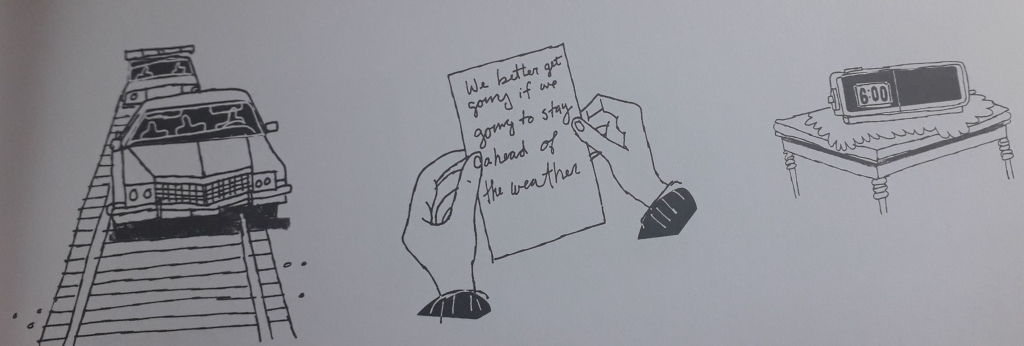 We better get
going if we
going to stay
ahead of
the weather
6:00